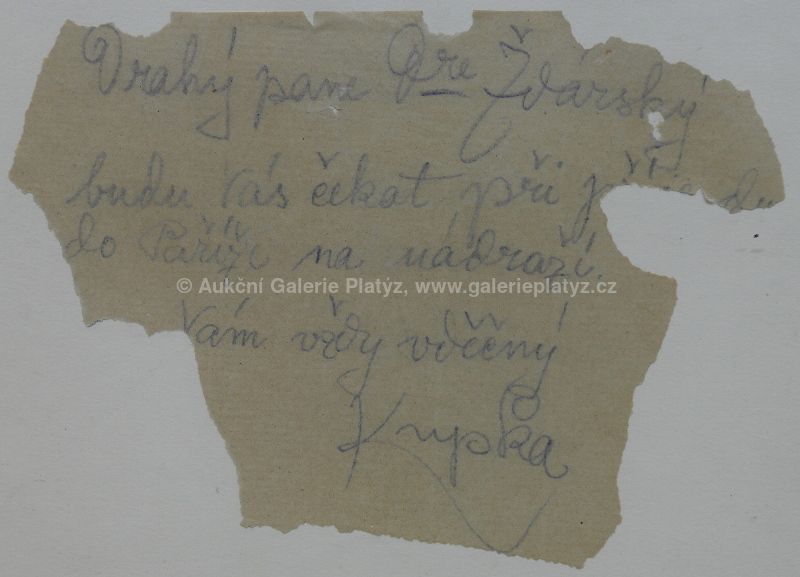 Drahý pane Dre Žďárský
budu Vás čekat při příjezdu
do Paříže na nádraží.
© Aukční Galerie Platýz, www.galerieplatyz.cz
Vám vždy vděčný
Kupka